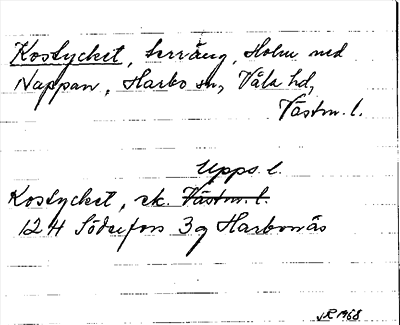 Kostycket, terräng, Holm med
Nappan, Harbo sn, Våla hd,
Västm. l.
Upps. l.
Kostycket, ek. Västm. l.
124 Söderfors 3g Harbonäs
JR 1968